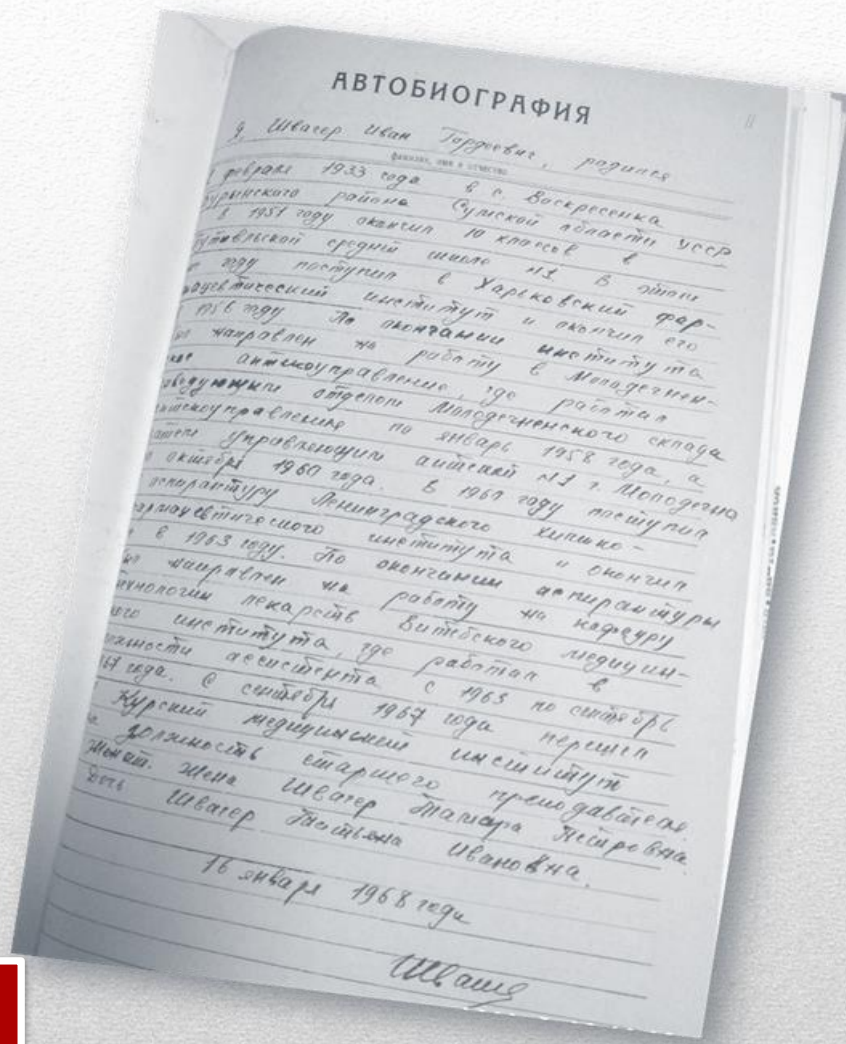 АВТОБИОГРАФИЯ
11
Я, Швагер Иван Гордеевич, родился
фамилия, имя и отчество
февраля 1933 года в с. Воскресенка
Бурынского района Сумской области УССР
в 1951 году окончил 10 классов в
Путивльской средней школе №1. В этом
году поступил в Харьковский фар-
мацевтический институт и окончил его
1956 году. По окончании института
направлен на работу в Молодечнен-
ское аптекоуправление, где работал
заведующим отделом Молодечненского склада
аптекоуправления по январь 1958 года, а
затем управляющим аптекой №1 г. Молодечна
по октябрь 1960 года. В 1960 году поступил
аспирантуру Ленинградского химико-
фармацевтического института и окончил
в 1963 году. По окончании аспирантуры
направлен на работу на кафедру
технологии лекарств Витебского медицин-
ского института, где работал в
должности ассистента с 1963 по сентябрь
1967 года. С сентября 1967 года перешел
Курский медицинский институт
на должность старшего преподавателя.
Женат. Жена Швагер Тамара Петровна.
Дочь Швагер Татьяна Ивановна.
16 января 1968 года